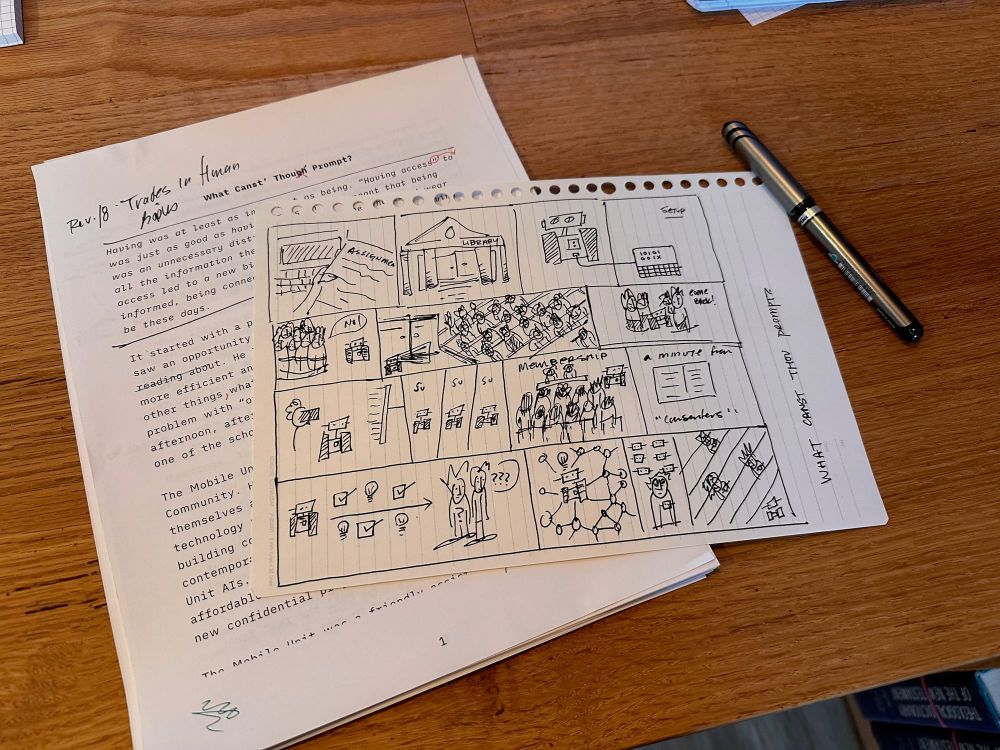 Rev. 18 - Trades in Human
Bodies
What Canst' Though Prompt?
Having was at least as in
as being. "Having access" to
was just as good as having
ant that being
was an unnecessary dist
wear
all the information the
access led to a new bi
informed, being conne
be these days.
It started with a p
saw an opportunity
reading about. He
more efficient an
other things, wha
problem with "o
afternoon, afte
one of the scho
The Mobile Un
Community. H
themselves a
technology
building co
contempora
Unit AIs.
affordabl
new confidential pr
The Mobile Unit was a friendly assist
1
ASSIGNMEN
LIBRARY
SETUP
10101
001X
NO!
COME
BACK!
SU
SU
SU
MEMBERSHIP
a minute from
"consenters"
???
WHAT CANST THOU PROMPT?
THEOLOGICAL DICTIONARY
OF THE NEW TESTAMENT